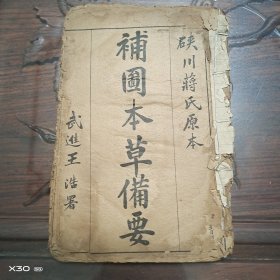 硤川蔣氏原本
補圖本草備要
武進王浩署
X30